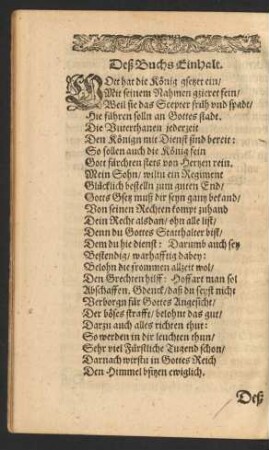 Deß Buchs Einhalt.
GOtt hat die König gsetzet ein/
Mit seinem Nahmen gzieret fein/
Weil sie das Scepter früh vnd spadt/
Hie führen solln an Gottes stadt.
Die Vnterthanen jederzeit
Den Könign mit Dienst sind bereit:
So sollen auch die König sein
Got fürchten stets von Hertzen rein.
Mein Sohn/ wiltu ein Regiment
Glücklich bestelln zum guten End/
Gotts Gsetz muß dir seyn gantz bekand/
Von seinen Rechten kompt zuhand
Dein Recht alsdan/ ohn alle list/
Denn du Gottes Statthalter bist/
Dem du hie dienst: Darumb auch sey
Bestendig/ warhafftig dabey:
Belohn die frommen allzeit wol/
Den Grechten hilff: Hoffart man sol
Abschaffen. Gdenck/ daß du seyst nicht
Verborgn für Gottes Angesicht/
Der böses strafft/ belohnt das gut/
Darzu auch alles richten thut:
So werden in dir leuchten thun/
Sehr viel Fürstliche Tugend schon/
Darnach wirstu in Gottes Reich
Den Himmel bsitzen ewiglich.
Deß